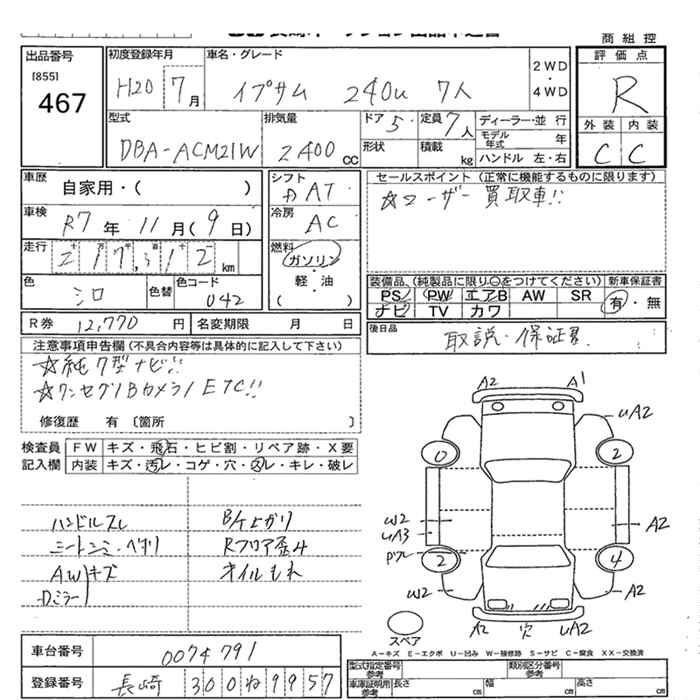 商組控
出品番号
[855]
467
初度登録年月
H20 7月
車名・グレード
イプサム 240u 7人
2WD
・
4WD
評価点
R
外装 内装
C C
型式
DBA-ACM21W
排気量
2400cc
ドア 5
形状
定員 7人
積載 kg
ディーラー・並行
モデル年式 年
ハンドル 左・右
車歴
自家用・( )
車検
R7年11月(9日)
走行
217,312km
色
シロ
色替
色コード
042
シフト
AT
冷房
AC
燃料
ガソリン
・
軽・油
( )
セールスポイント (正常に機能するものに限ります)
☆ユーザー買取車!!
装備品、(純製品に限り○をつけてください)
PS PW エアB AW SR
ナビ TV カワ
新車保証書
有・無
R券 12,770円
名変期限 月 日
後日品
取説・保証書
注意事項申告欄(不具合内容等は具体的に記入して下さい)
☆純正型ナビ!!
☆ワンセグ/Bカメラ/ETC!!
修復歴 有〔箇所 〕
検査員 FW キズ・飛石・ヒビ割・リペア跡・X要
記入欄 内装 キズ・汚レ・コゲ・穴・スレ・キレ・破レ
ハンドルスレ
シートシミ・ヘタリ
AW キズ
Dミラー
B/Fよがり
Rフロア歪み
オイルもれ
A2 A1
UA2
0 2
W2
UA3
A2
2 4
W2 A2
A2 穴 UA2
スペア
A-キズ E-エクボ U-凹み W-補修跡 S-サビ C-腐食 XX-交換済
車台番号
0074791
登録番号
長崎 300ね9957
型式指定番号
参考
類別区分番号
参考
車庫証明用
参考
長さ cm
幅 cm
高さ cm